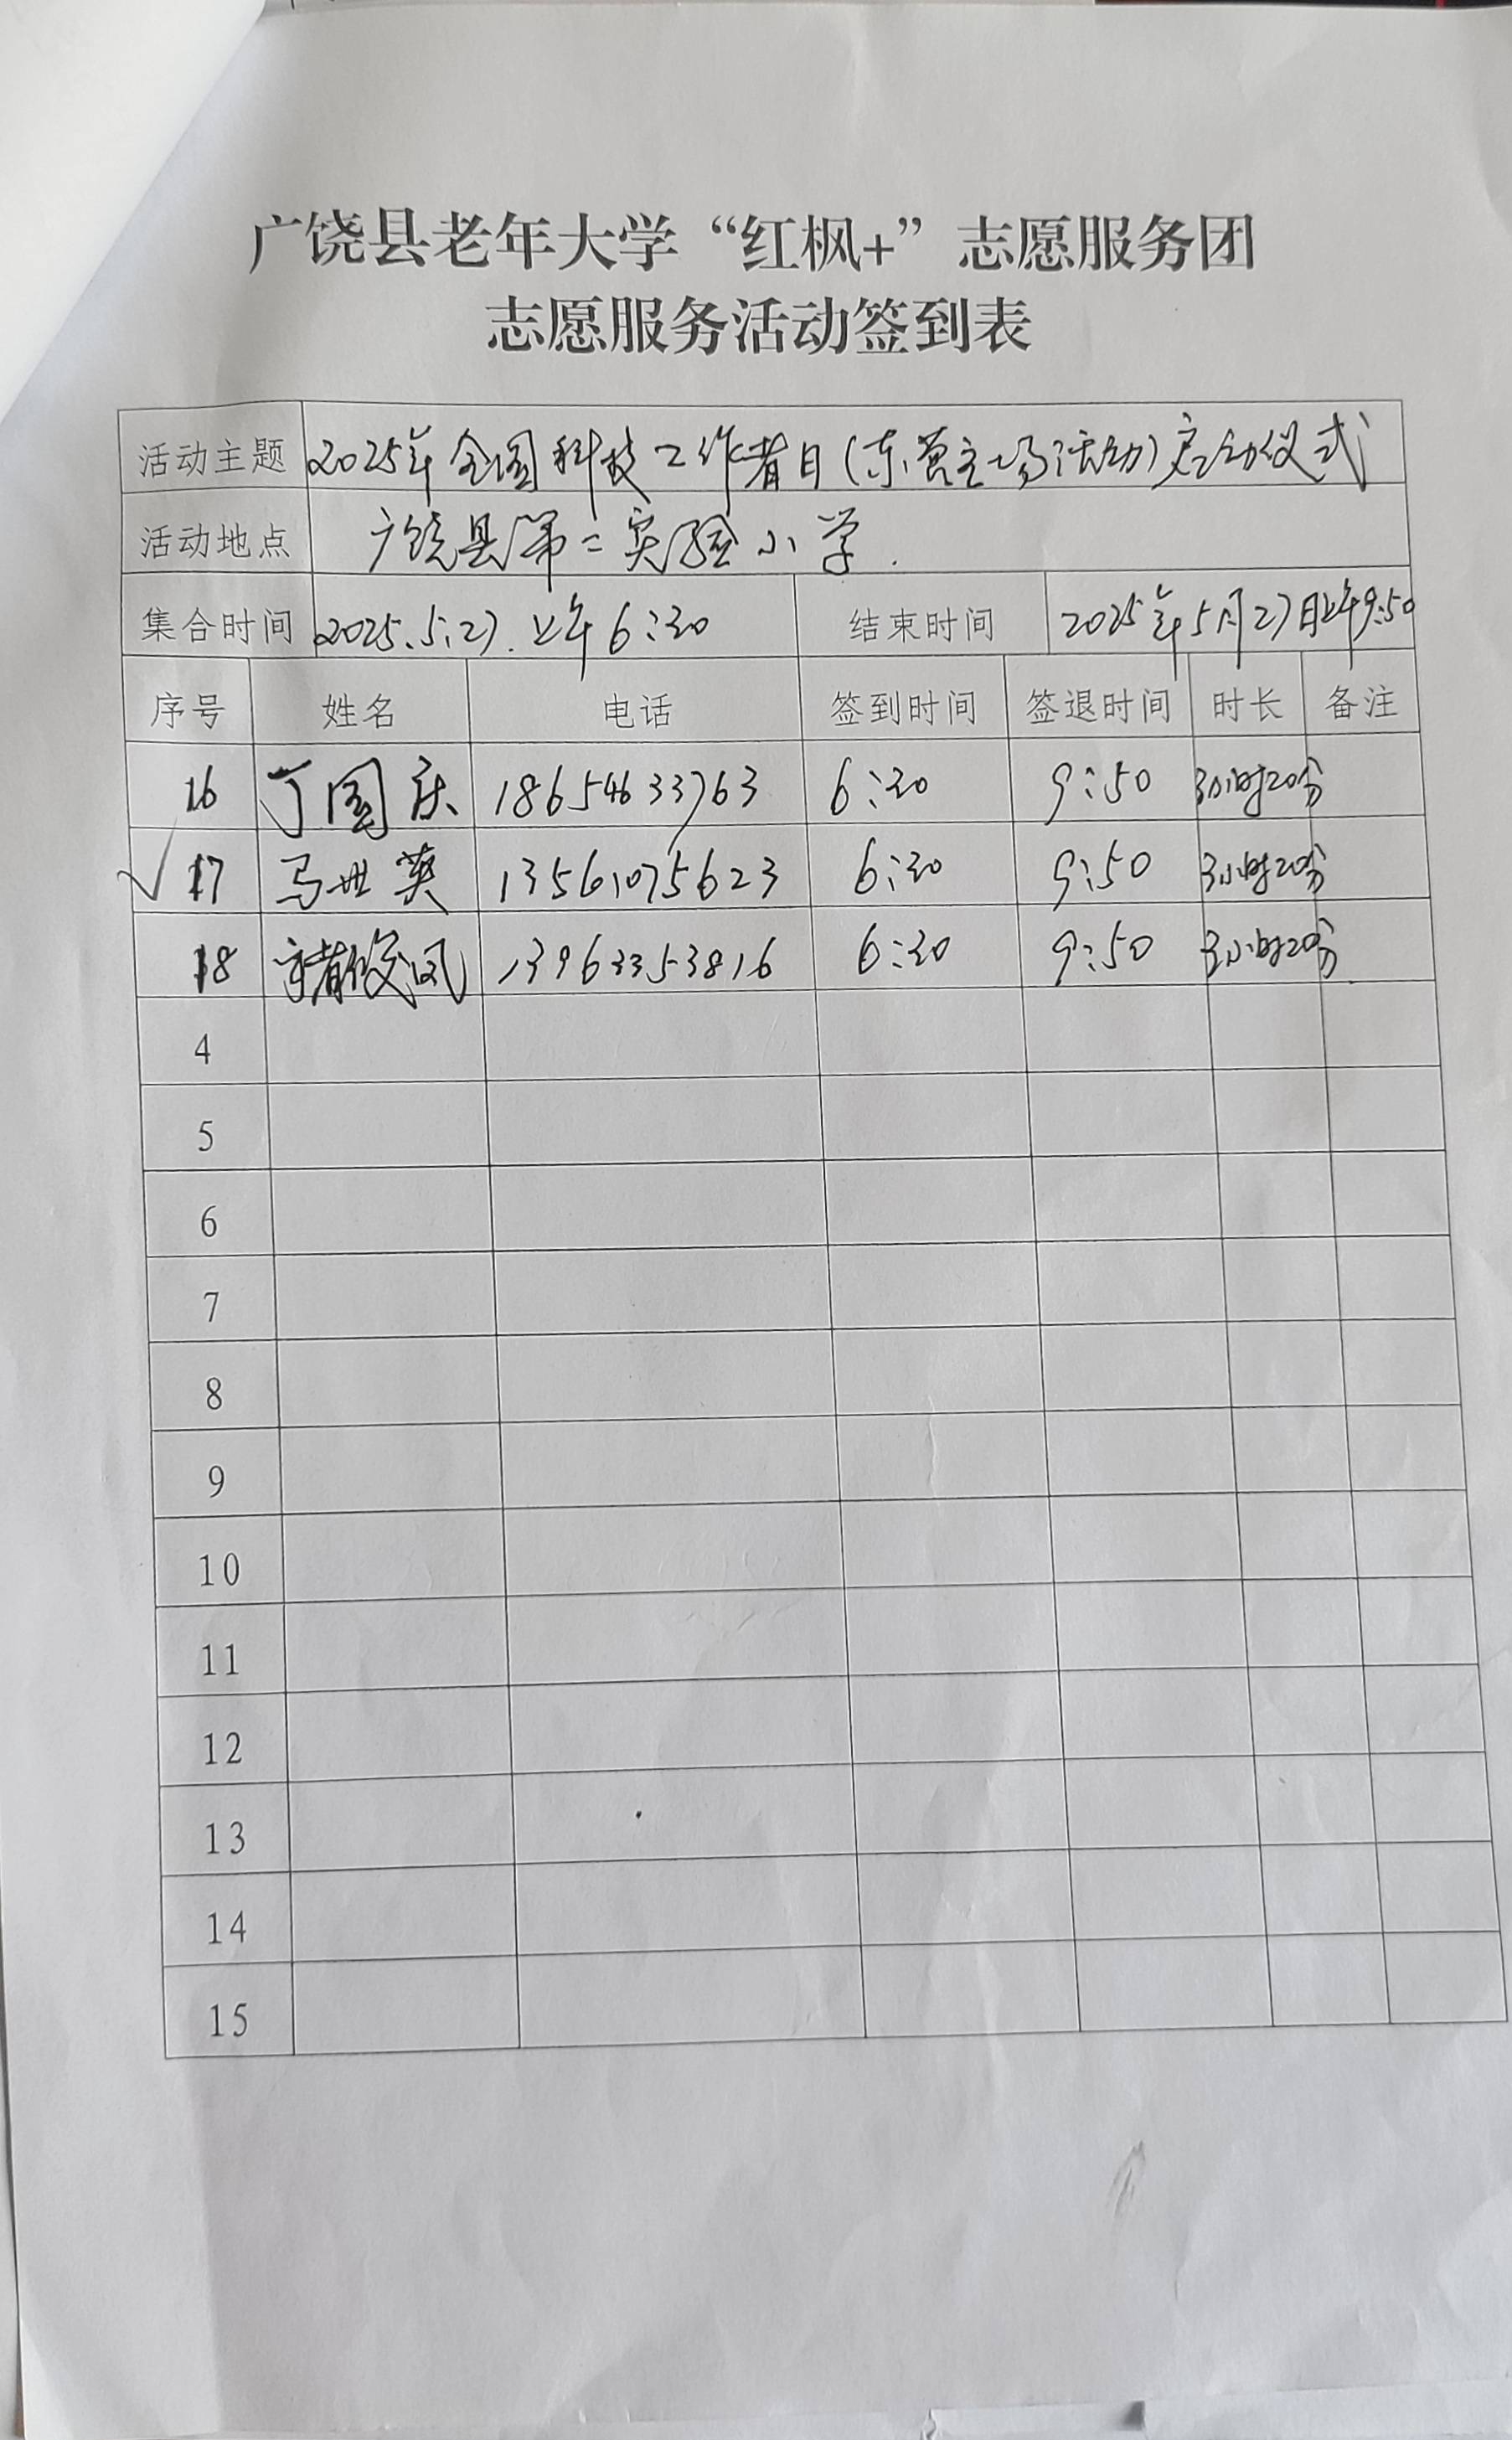 广饶县老年大学“红枫+”志愿服务团
志愿服务活动签到表
活动主题 2025年全国科技工作者日(东营主场活动)启动仪式
活动地点 广饶县第二实验小学.
集合时间 2025.5.27.上午6:30 结束时间 2025年5月27日上午9:50
序号 姓名 电话 签到时间 签退时间 时长 备注
16 丁国庆 18654633763 6:30 9:50 3小时20分
√ 17 马世英 13561075623 6:30 9:50 3小时20分
18 凤 13963353816 6:30 9:50 3小时20分
4
5
6
7
8
9
10
11
12
13
14
15